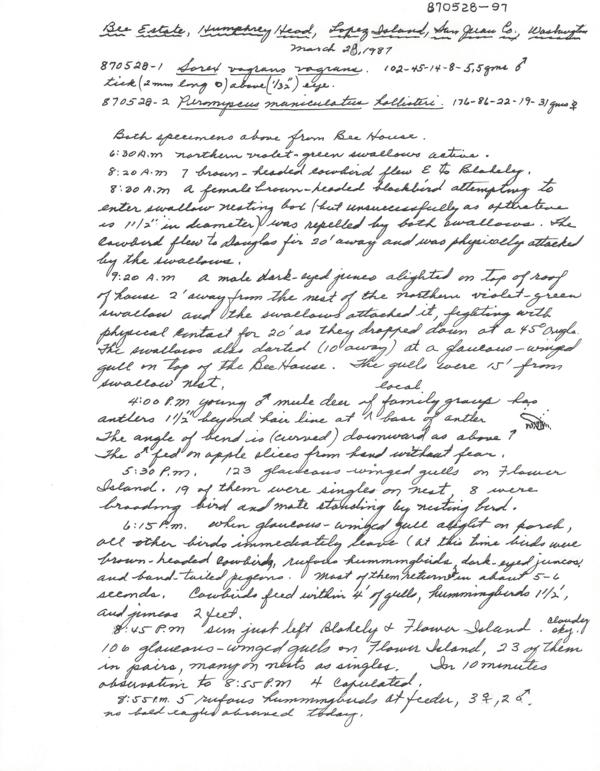 870528-97
Bee Estate, Humphrey Head, Lopez Island, San Juan Co., Washington
March 28, 1987
870528-1 Sorex vagrans vagrans. 102-45-14-8-5,5gms ♂
tick (2mm long 0) above (1/32") eye.
870528-2 Peromyscus maniculatus hollisteri. 176-86-22-19-31gms ♀
Both specimens above from Bee House.
6:30 A.m northern violet-green swallows active.
8:20 A.m 7 brown-headed cowbird flew E to Blakely.
8:30 A.m a female brown-headed blackbird attempting to
enter swallow nesting box (but unsuccessfully as
is 1 1/2" in diameter) was repelled by both swallows. The
cowbird flew to Douglas fir 20' away and was physically attacked
by the swallows.
9:20 A.m a male dark-eyed junco alighted on top of roof
of house 2' away from the nest of the northern violet-green
swallow and the swallows attached it, fighting with
physical contact for 20' as they dropped down at a 45° angle.
The swallows also darted (10' away) at a glaucous-winged
gull on top of the Bee House. The gulls were 15' from
swallow nest.
local
4:00 P.M young ♂ mule deer of ^ family group has
antlers 1 1/2" beyond hair line at base of antler
The angle of bend is (curved) downward as above?
The ♂ fed on apple slices from hand without fear.
5:30 P.m. 123 glaucous-winged gulls on Flower
Island. 19 of them were singles on nest, 8 were
brooding bird and mate standing by nesting bird.
6:15 P.m. when glaucous-winged gull alight on porch,
all other birds immediately leave (at this time birds were
brown-headed cowbirds, rufous hummingbirds, dark-eyed juncos,
and band-tailed pigeons. most of them return in about 5-6
seconds. Cowbirds feed within 4' of gulls, hummingbirds 1 1/2',
and juncos 2 feet.
8:45 P.M sun just left Blakely & Flower Island. cloudy sky.
106 glaucous-winged gulls on Flower Island, 23 of them
in pairs, many on nests as singles. In 10 minutes
observation to 8:55 P.M 4 copulated.
8:55 P.m. 5 rufous hummingbirds at feeder, 3 ♀, 2 ♂.
no bald eagles observed today.